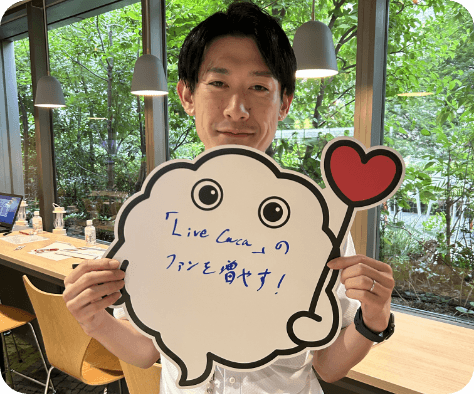 「Live Casa」の
ファンを増やす！